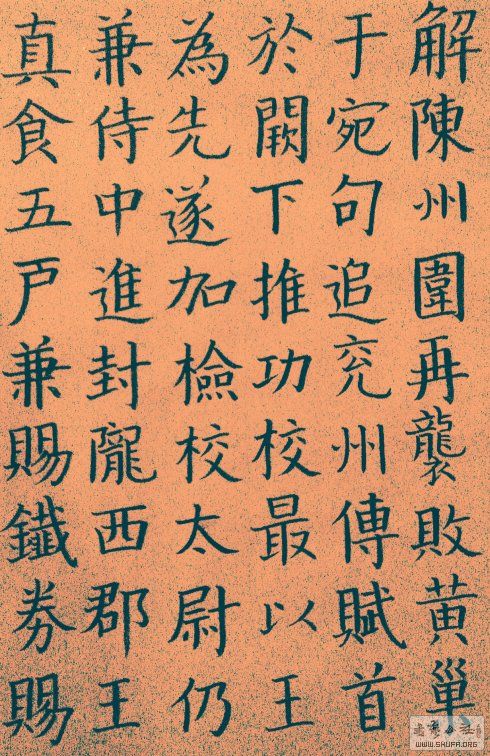 解陳州圍再襲敗黄巢
于宛句追兖州傳賦首
於闕下推功校最以王
為先遂加檢校太尉仍
兼侍中進封隴西郡王
真食五戸兼賜鐵券賜
WWW.SHUFA.ORG